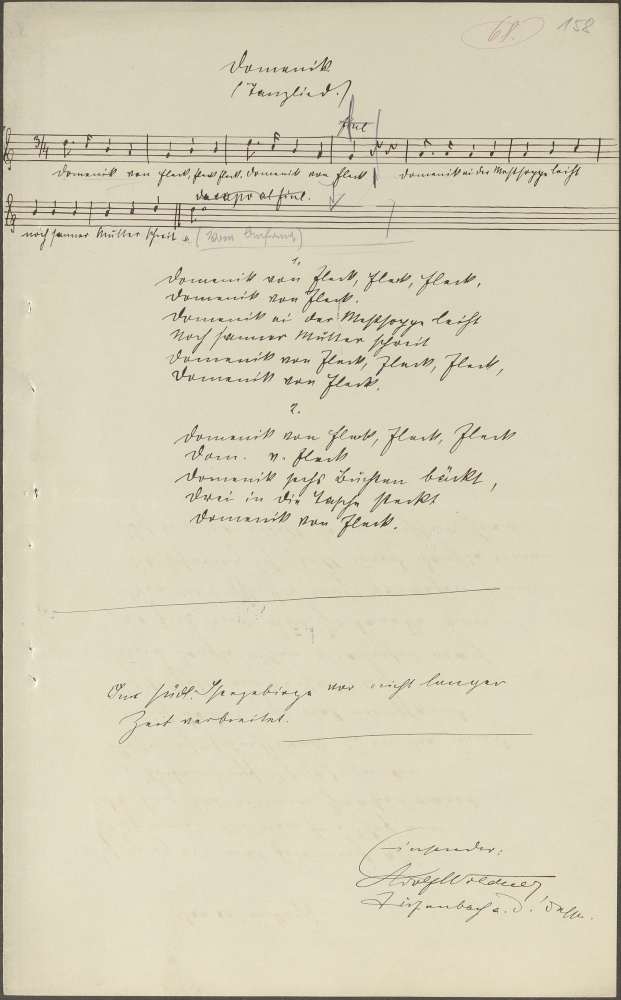 68. 158
Domenik
(Tanzlied.)
3/4
Domenik von Fleck, Fleck, Fleck, Domenik von Fleck Domenik ai der Mostsoppe leiht
da capo al fine.
noch sanner Mutter schreit
(Vom Anfang)
1.
Domenik von Fleck, Fleck, Fleck,
Domenik von Fleck.
Domenik ai der Mostsoppe leiht
Noch sanner Mutter schreit
Domenik von Fleck, Fleck, Fleck,
Domenik von Fleck.
2.
Domenik von Fleck, Fleck, Fleck
Dom. v. Fleck
Domenik sechs Buchten bäckt,
Drei in die Tasche steckt
Domenik von Fleck.
Im südl. Isergebirge vor nicht langer
Zeit verbreitet.
Einsender:
Adolf
a. d.